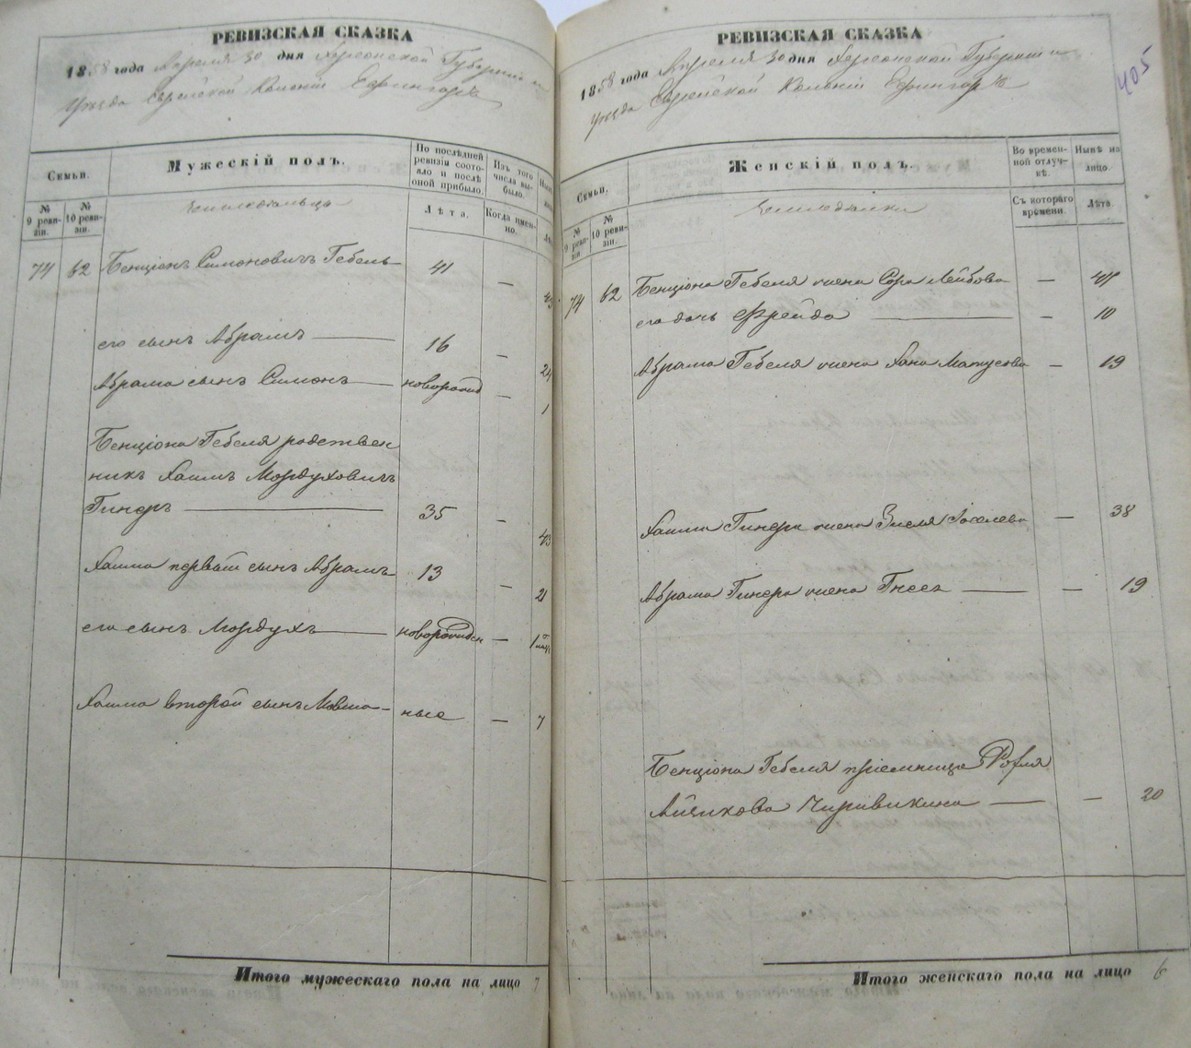 РЕВИЗСКАЯ СКАЗКА
1858 года Апреля 30 дня Херсонской Губерніи и
Уѣзда Еврейской Колоніи Ефингаръ
Семьи.
Мужескій полъ.
По послѣдней ревизіи состояло и послѣ оной прибыло.
Изъ того числа выбыло.
№ 9 ревизіи.
№ 10 ревизіи.
Лѣта.
Когда именно.
74 62 Бенціонъ Симоновичъ Гебель 41 —
его сынъ Абрамъ 16 — 24
Абрама сынъ Симонъ новорожд — 1
Бенціона Гебеля родствен
никъ Хаимъ Мордуховичъ
Гинеръ 35 — 43
Хаима первый сынъ Абрамъ 13 — 21
его сынъ Мордухъ новорожден — 1
Хаима второй сынъ Мовша — ныѣ — 7
Итого мужескаго пола на лицо 7
РЕВИЗСКАЯ СКАЗКА
405
1858 года Апреля 30 дня Херсонской Губерніи и
Уѣзда Еврейской Колоніи Ефингаръ
Семьи.
Женскій полъ.
Во временной отлучкѣ.
Нынѣ на лицо.
№ 9 ревизіи
№ 10 ревизіи.
Съ котораго времени.
Лѣта.
74 62 Бенціона Гебеля жена Сора Лейбова —
его дочь Фрейда — 10
Абрама Гебеля жена Хана Матусова — 19
Хаима Гинера жена Зисля Іоселева — 38
Абрама Гинера жена Гнеся — 19
Бенціона Гебеля пріемница
— 20
Итого женскаго пола на лицо 6